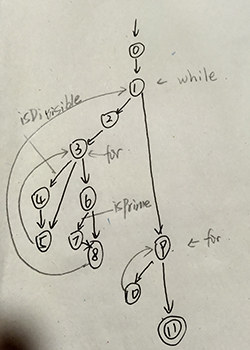 0
1 while
isDivisible
2
3 for
4 6
isPrime
5 7 8
9 for
10
11